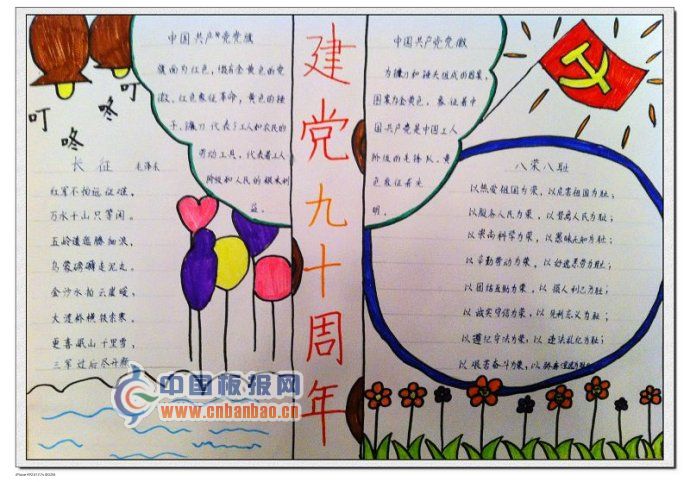 建党九十周年
叮
咚
叮
咚
长征 毛泽东
红军不怕远征难，
万水千山只等闲。
五岭逶迤腾细浪，
乌蒙磅礴走泥丸。
金沙水拍云崖暖，
大渡桥横铁索寒。
更喜岷山千里雪，
三军过后尽开颜。
中国共产党党旗
旗面为红色，缀有金黄色的党
徽，红色象征革命，黄色的锤
子、镰刀代表了工人和农民的
劳动工具，代表着工人
阶级和人民的根本利
益。
中国共产党党徽
为镰刀和锤头组成的图案，
图案为金黄色，象征着中
国共产党是中国工人
阶级的先锋队，黄
色象征着光
明。
八荣八耻
以热爱祖国为荣，以危害祖国为耻；
以服务人民为荣，以背离人民为耻；
以崇尚科学为荣，以愚昧无知为耻；
以辛勤劳动为荣，以好逸恶劳为耻；
以团结互助为荣，以损人利己为耻；
以诚实守信为荣，以见利忘义为耻；
以遵纪守法为荣，以违法乱纪为耻；
以艰苦奋斗为荣，以骄奢淫逸为耻。
中国板报网
www.cnbanbao.cn